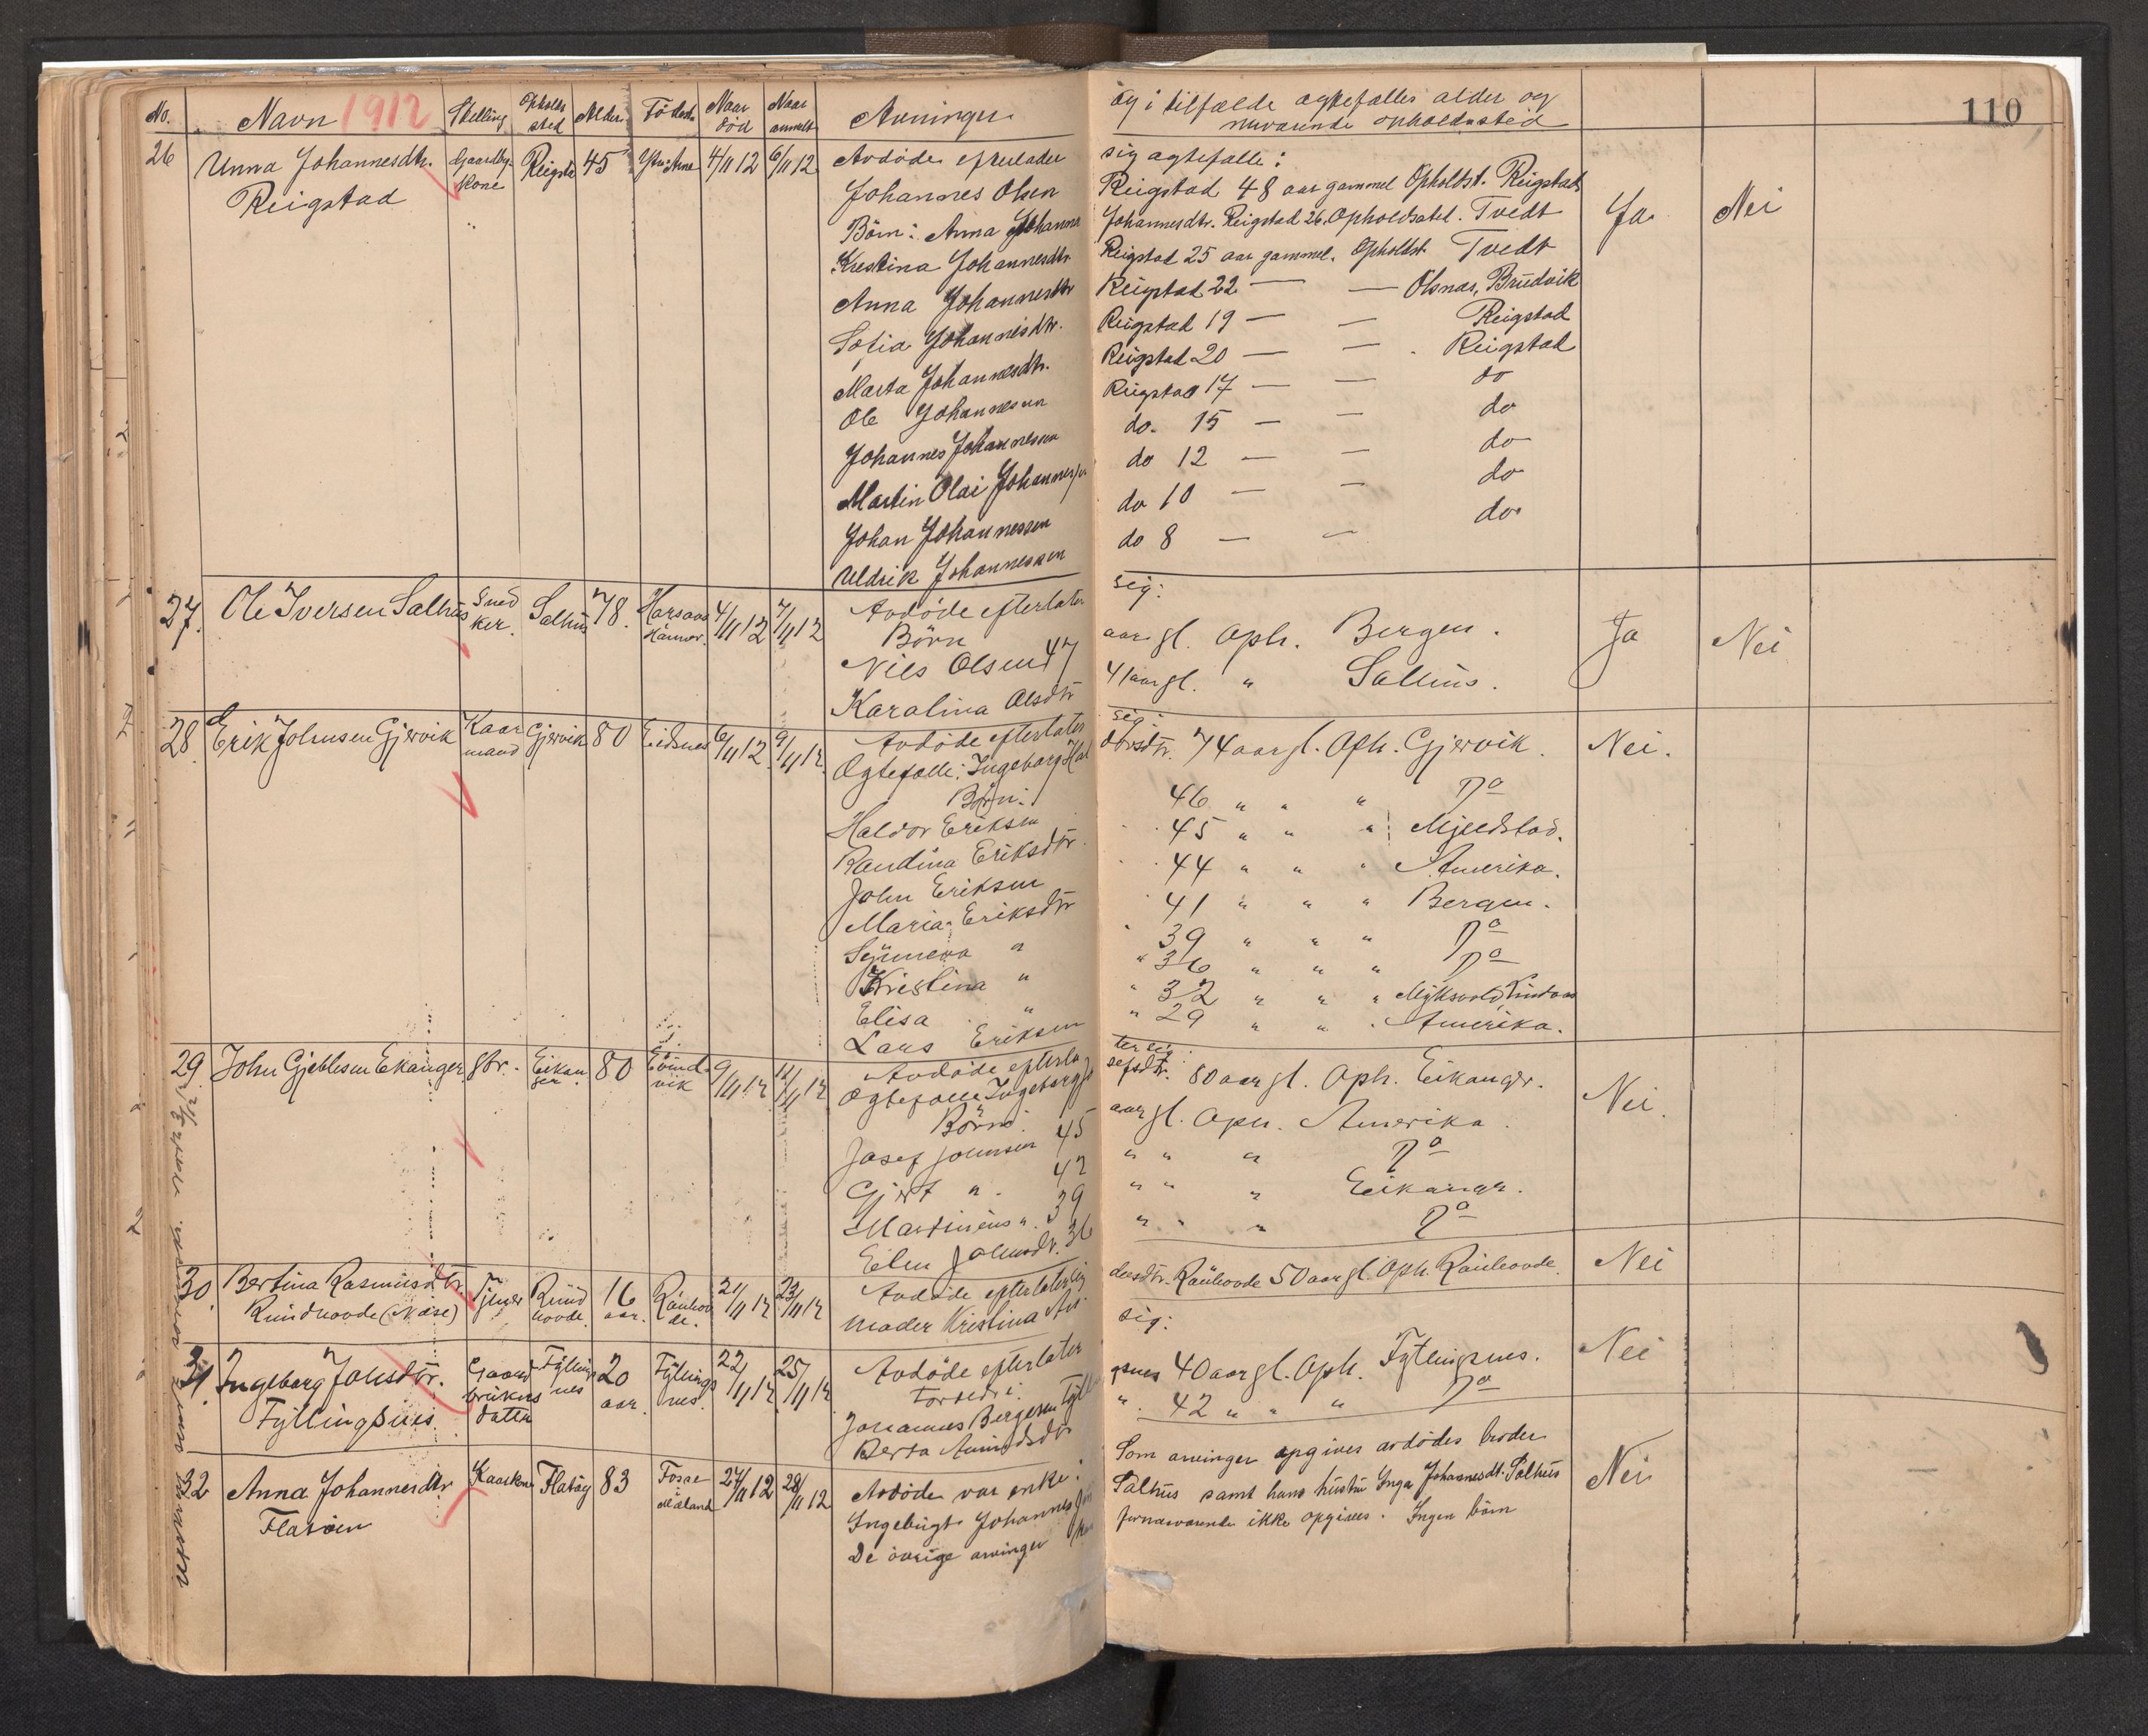 110
No. Navn 1912 Stelling Opholds sted Alder Födested Naar död Naar anmeldt Arvinger og i tilfælde ægtefælles alder og
nuværende opholdssted
26 Unna Johannesdtr. Gaardbr. Reigsta 45 Ytre Arne 4/11 12 6/11 12 Avdöde efterlader sig ægtefælle:
Reigstad kone Johannes Olsen Reigstad 48 aar gammel Opholdst. Reigstad
Börn: Anna Johanna Johannesdtr. Reigstad 26. Opholdssted. Tvedt Ja Nei
Kristina Johannesdtr Reigstad 25 aar gammel. Opholdst. Tvedt
Anna Johannesdtr Reigstad 22 — — Olsnæs, Brudvik
Sofia Johannesdtr. Reigstad 19 — — Reigstad
Marta Johannesdtr. Reigstad 20 — — Reigstad
Ole Johannesen Reigstad 17 — — do
Johannes Johannesen do. 15 — — do
Martin Olai Johannessen do 12 — — do
Johan Johannessen do 10 — — do
Uldrik Johannessen do 8 — — do
27. Ole Iversen Salhus Sned Salhus 78. 4/11 12 7/11 12 Avdöde efterlater sig:
ker. Hammer. Börn
Nils Olsen 47 aar gl. Oph. Bergen. Ja Nei
Karolina Olsdtr 41 aar gl. " Salhus.
28. Erik Johnsen Gjervik Kaar Gjervik 80 Eidsnes 6/11 12 9/11 12. Avdöde efterlater sig:
mand Ægtefælle: Ingeborg Hal dorsdtr. 74 aar gl. Oph. Gjervik. Nei.
Börn:
Haldor Eriksen 46 " " " Do
Randina Eriksdtr 45 " " " Mjeldstad.
John Eriksen 44 " " " Amerika.
Maria Eriksdtr 41 " " " Bergen.
Synneva " 39 " " " Do
Kristina " " 36 " " " Do
Elisa " " 32 " " "
Lars Eriksen " 29 " " " Amerika.
29. John Gjeblesen Ekanger gbr. Eikan 80 Evind 9/11 12 12/11 12 Avdöde efterla ter sig:
ger. vik Ægtefælle Ingeborg Jo sefsdtr. 80 aar gl. Oph. Eikanger. Nei.
Börn:
Josef Johnsen 45 aar gl. Oph. Amerika.
Gjert " 42 " " " Do
Martinius " 39 " " " Eikanger.
Elen Johnsdtr. 36 " " " Do
30. Bertina Rasmusdtr. Tjener Rund 16 Rauhov 21/11 12 23/11 12 Avdöde efterlater sig
Rundhovde (Naase) hovde. aar. de. moder Kristina An dersdtr. Rauhovde 50 aar gl. Oph. Rauhovde. Nei
31. Ingeborg Johsdtr. Gaard Fylling 20 Fyllings 22/11 12 25/11 12 Avdöde efterlater sig:
Fyllingsnes. brukers nes aar. nes. forældre:
datter Johannes Bergesen Fyllin gsnes 40 aar gl. Oph. Fyllingsnes. Nei
Berta Amundsdtr " 42 " " " Do
32 Anna Johannesdtr Kaarkone Flatöy 83 Fosse 27/11 12 28/11 12 Avdöde var enke. Som arvinger opgives avdödes broder
Flatöen Mæland Ingebrigt Johannes Salhus samt hans hustru Inga Johannesdt. Salhus Nei
De övrige arvinger fornærværende ikke opgives. Ingen börn